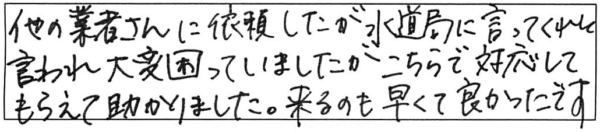 他の業者さんに依頼したが水道局に言ってくれと
言われ大変困っていましたがこちらで対応して
もらえて助かりました。来るのも早くて良かったです